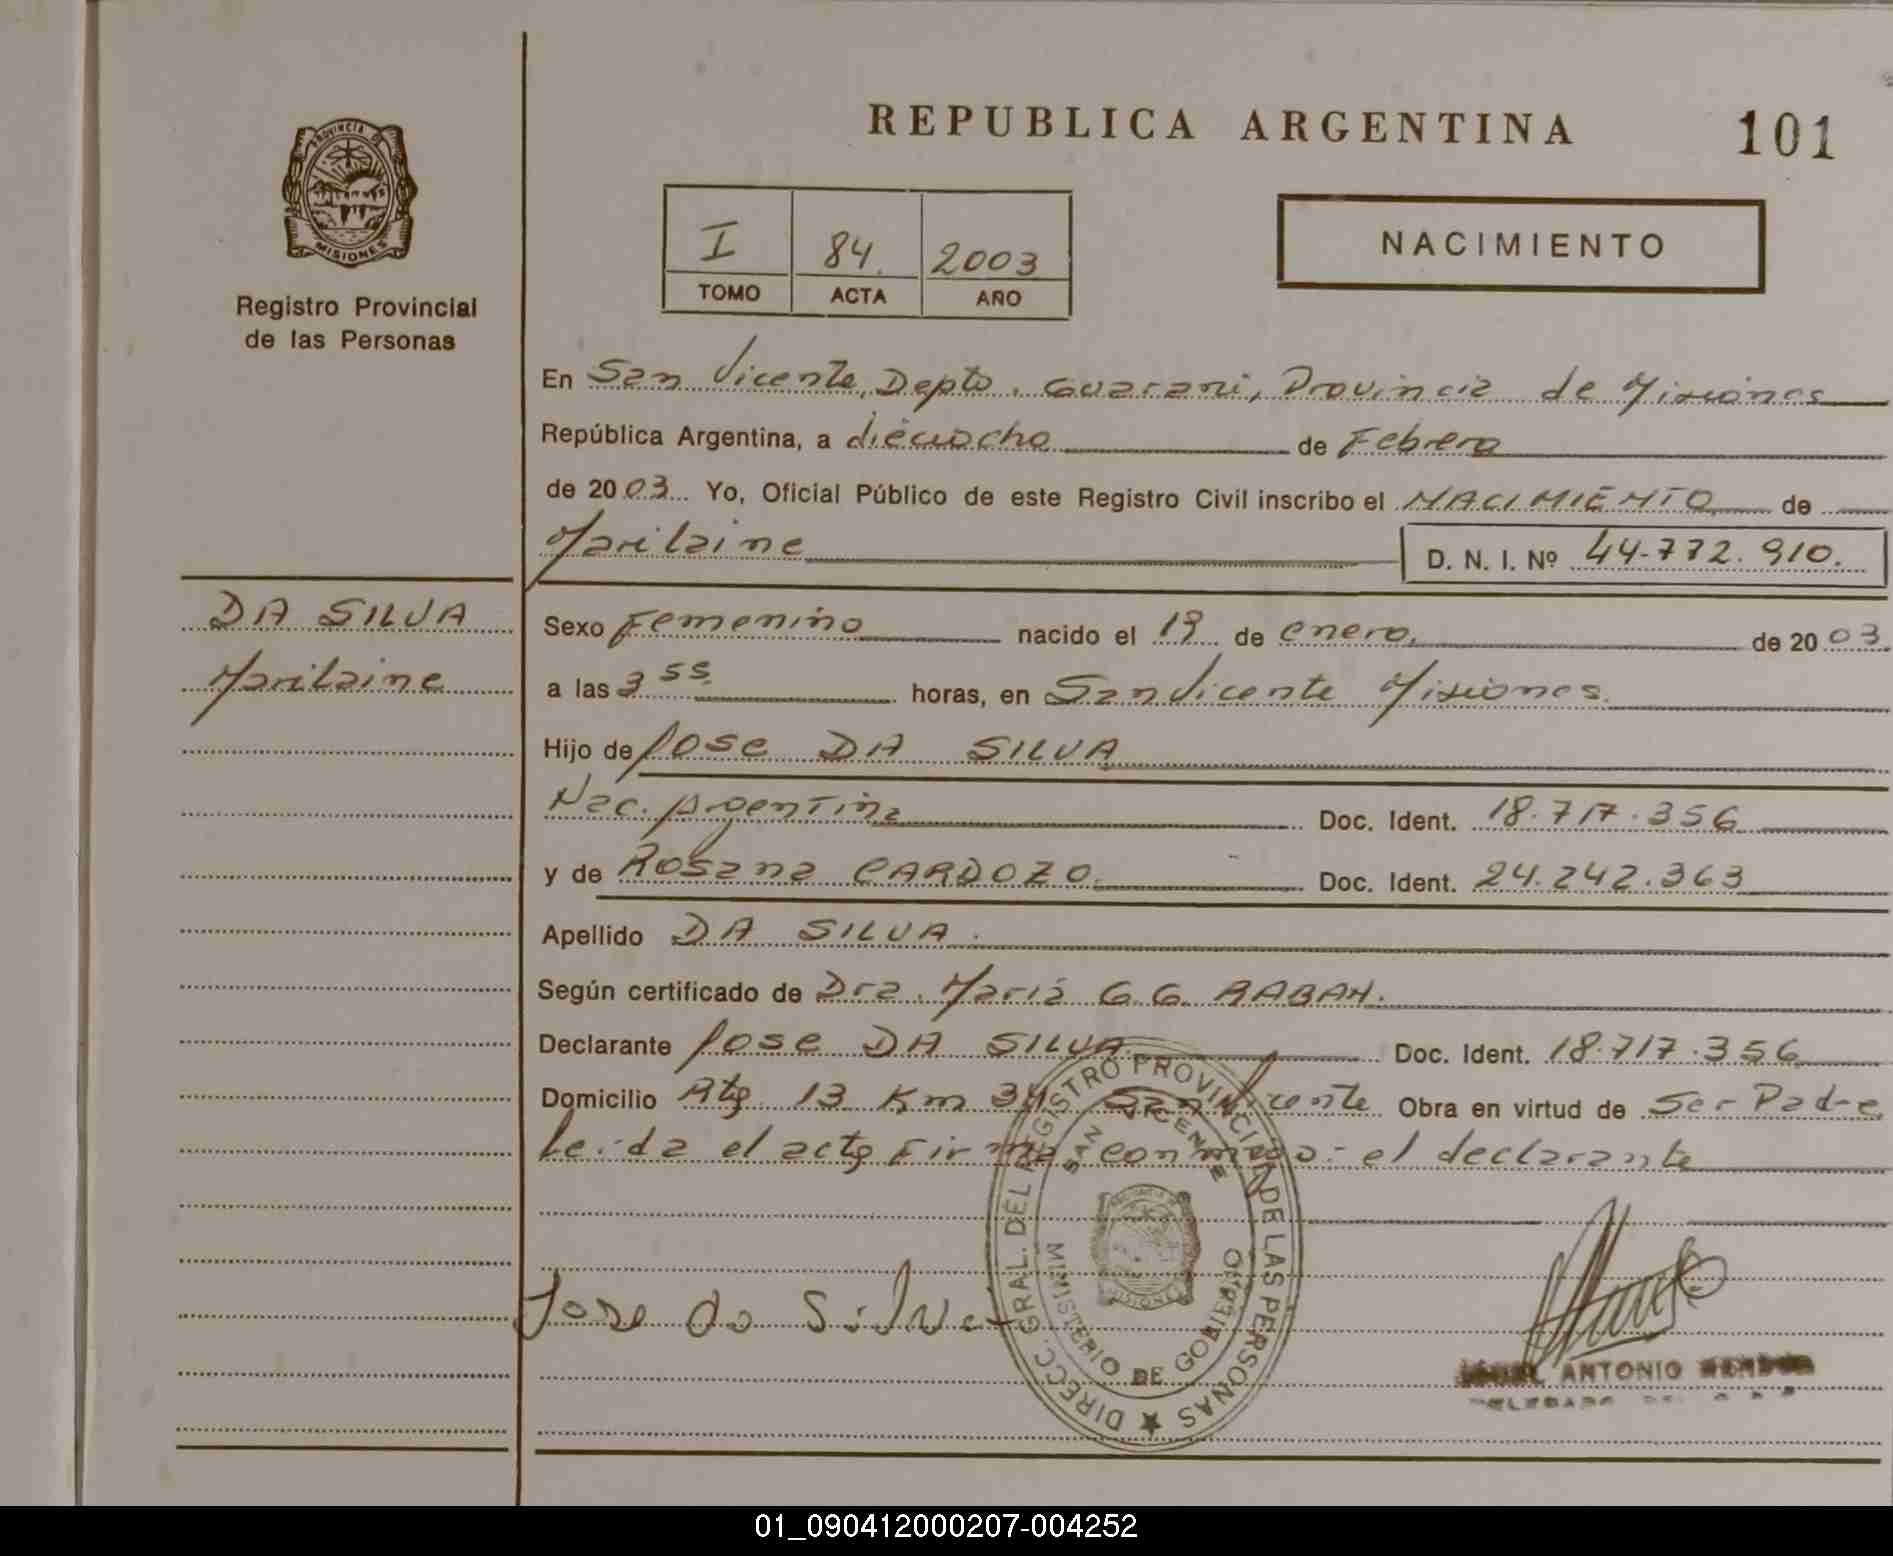 REPUBLICA ARGENTINA
101
PROVINCIA DE
MISIONES
Registro Provincial
de las Personas
I 84. 2003
TOMO ACTA AÑO
NACIMIENTO
En San Vicente, Depto. Guarani, Provincia de Misiones
República Argentina, a dieciocho de Febrero
de 2003 Yo, Oficial Público de este Registro Civil inscribo el NACIMIENTO de
Marilaine D. N. I. Nº 44.772.910.
DA SILVA
Marilaine
Sexo Femenino nacido el 19 de enero, de 2003
a las 3 55 horas, en San Vicente Misiones.
Hijo de Jose DA SILVA
Nac. Argentina Doc. Ident. 18.717.356
y de Rosana CARDOZO Doc. Ident. 24.242.363
Apellido DA SILVA.
Según certificado de Dra. Maria G.G.
Declarante Jose DA SILVA Doc. Ident. 18.717.356
Domicilio Rta 13 Km 34 San Vicente Obra en virtud de Ser Padre
Leida el acta Firma conmigo: el declarante
DIRECC. GRAL. DEL REGISTRO PROVINCIAL DE LAS PERSONAS
SAN VICENTE
MINISTERIO DE GOBIERNO
MISIONES
Jose da Silva
ANTONIO
01_090412000207-004252